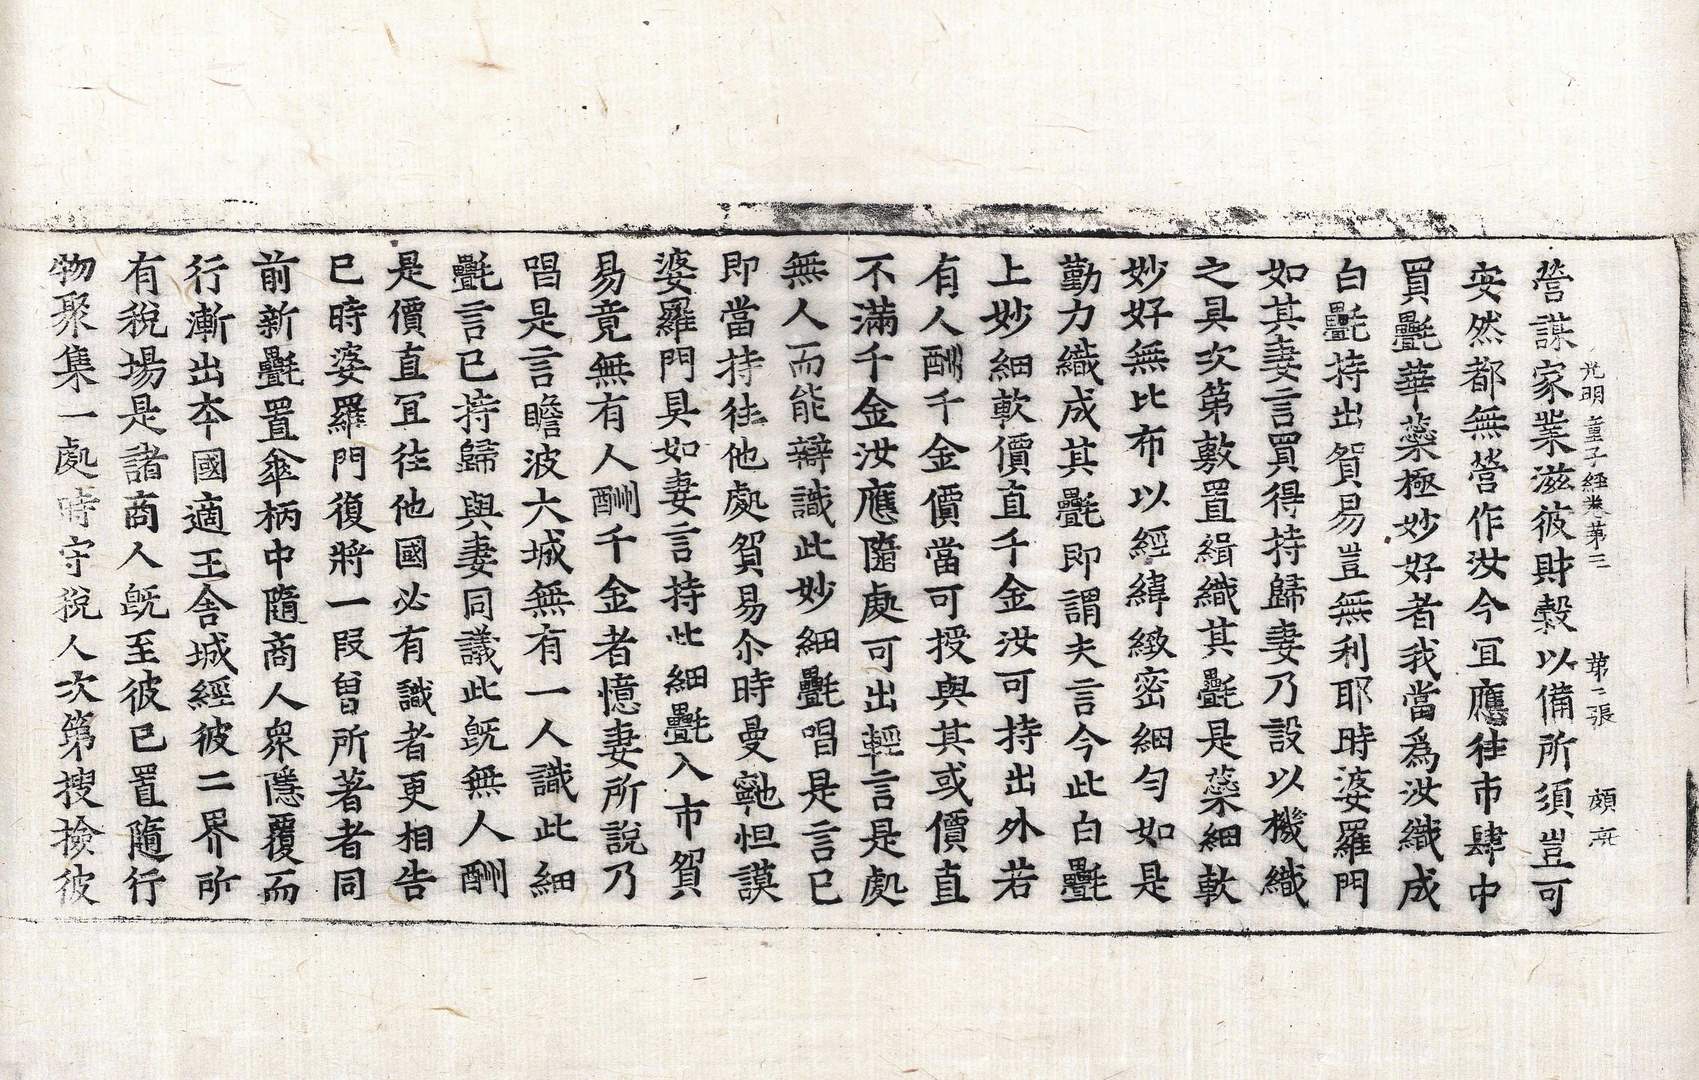 光明童子經卷第三 第二張 頗
營謀家業滋彼財穀以備所須豈可
安然都無營作汝今冝應往市肆中
買㲲華蘂極妙好者我當爲汝織成
白㲲持出貿易豈無利耶時婆羅門
如其妻言買得持歸妻乃設以機織
之具次第敷置緝織其㲲是蘂細軟
妙好無比布以經緯緻密細勻如是
勤力織成其㲲即謂夫言今此白㲲
上妙細軟價直千金汝可持出外若
有人酬千金價當可授與其或價直
不滿千金汝應隨處可出輕言是處
無人而能辯識此妙細㲲唱是言已
即當持往他處貿易尒時曼䩭怛謨
婆羅門具如妻言持此細㲲入市貿
易竟無有人酬千金者憶妻所說乃
唱是言瞻波大城無有一人識此細
㲲言已持歸與妻同議此旣無人酬
是價直冝往他國必有識者更相告
已時婆羅門復將一段曾所著者同
前新㲲置傘柄中隨商人衆隱覆而
行漸出夲國適王舍城經彼二界所
有稅場是諸商人旣至彼已置隨行
物聚集一處時守稅人次第搜撿彼